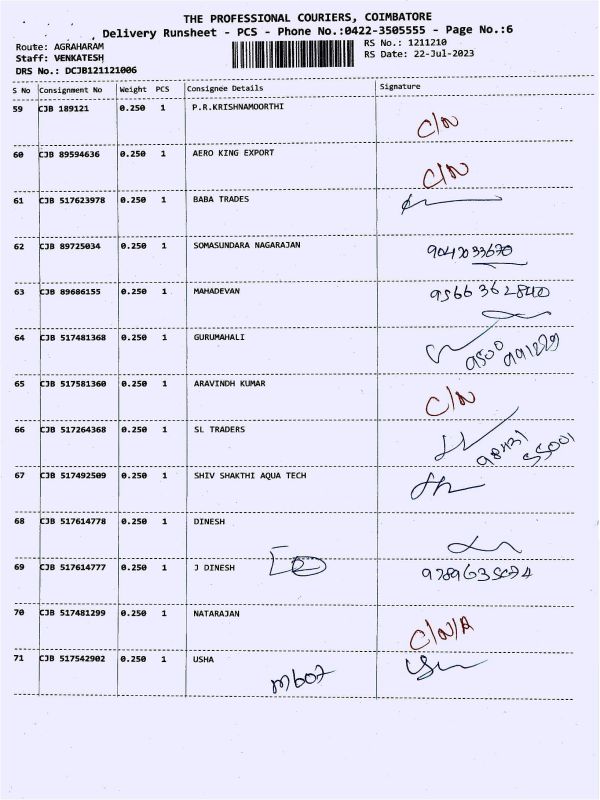 THE PROFESSIONAL COURIERS, COIMBATORE
Delivery Runsheet - PCS - Phone No.:0422-3505555 - Page No.:6
Route: AGRAHARAM
RS No.: 1211210
Staff: VENKATESH
RS Date: 22-Jul-2023
DRS No.: DCJB121121006
S No Consignment No Weight PCS Consignee Details Signature
59 CJB 189121 0.250 1 P.R.KRISHNAMOORTHI
C/N
60 CJB 89594636 0.250 1 AERO KING EXPORT
C/N
61 CJB 517623978 0.250 1 BABA TRADES
62 CJB 89725034 0.250 1 SOMASUNDARA NAGARAJAN
63 CJB 89686155 0.250 1 MAHADEVAN
9566362840
64 CJB 517481368 0.250 1 GURUMAHALI
65 CJB 517581360 0.250 1 ARAVINDH KUMAR
C/N
66 CJB 517264368 0.250 1 SL TRADERS
98431
55001
67 CJB 517492509 0.250 1 SHIV SHAKTHI AQUA TECH
68 CJB 517614778 0.250 1 DINESH
69 CJB 517614777 0.250 1 J DINESH
70 CJB 517481299 0.250 1 NATARAJAN
C/N/A
71 CJB 517542902 0.250 1 USHA